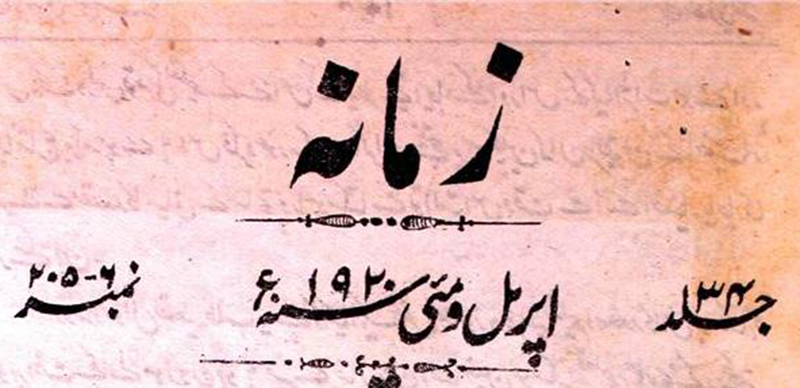 زمانہ
جلد ۳۴ اپریل و مئی سنہ ۱۹۲۰ء نمبر ۲۰۵-۶